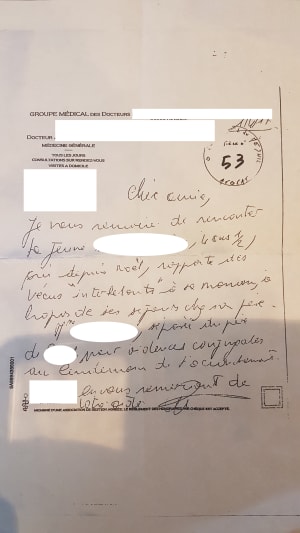 GROUPE MÉDICAL DES DOCTEURS
DOCTEUR
MÉDECINE GÉNÉRALE
TOUS LES JOURS
CONSULTATIONS SUR RENDEZ-VOUS
VISITES A DOMICILE
PIÈCE N°
53
AVOCAT
Chère amie,
Je vous remercie de rencontrer
la jeune , 4 ans 1/2,
qui depuis Noël, rapporte des
vécus "interpelants" à sa maman, à
propos de ses séjours chez son père.
Mme , séparée du père
de , pour violences conjugales
au lendemain de l'accouchement.
en vous remerciant de
votre aide
MEMBRE D'UNE ASSOCIATION DE GESTION AGRÉÉE. LE RÈGLEMENT DES HONORAIRES PAR CHÈQUE EST ACCEPTÉ.